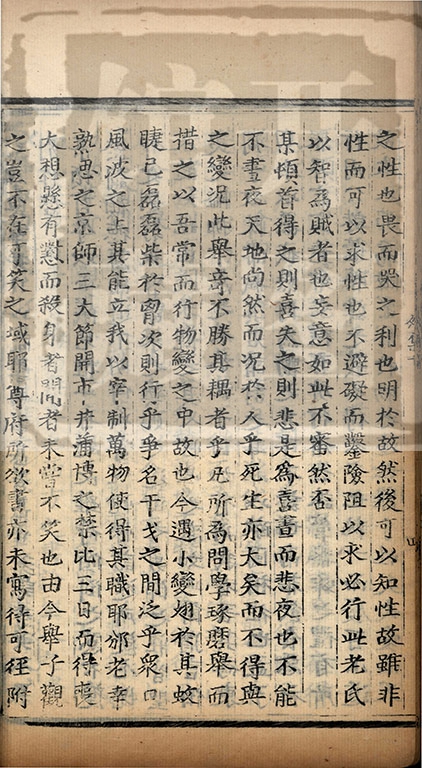 之性也畏而哭之利也明於故然後可以知性故雖非
性而可以求性也不避礙而鑿險阻以求必行此老氏
以智爲賊者也妄意如此不審然否
某頓首得之則喜失之則悲是爲喜晝而悲夜也不能
不晝夜天地尚然而況於人乎死生亦大矣而不得與
之變況此舉幸不勝其耦者乎凡所為問學琢磨舉而
措之以吾常而行物變之中故也今遇小變翅於其蚊
睫已磊磊柴於胷次則行乎爭名干戈之間泛乎衆口
風波之上其能立我以宰制萬物使得其職耶邠老幸
熟思之京師三大節開市井蒲博之禁比三日而得喪
大想懸有懟而殺身者聞者未嘗不笑也由今舉子觀
之豈不在可笑之域耶尊府所欲書亦未寫得可徑附